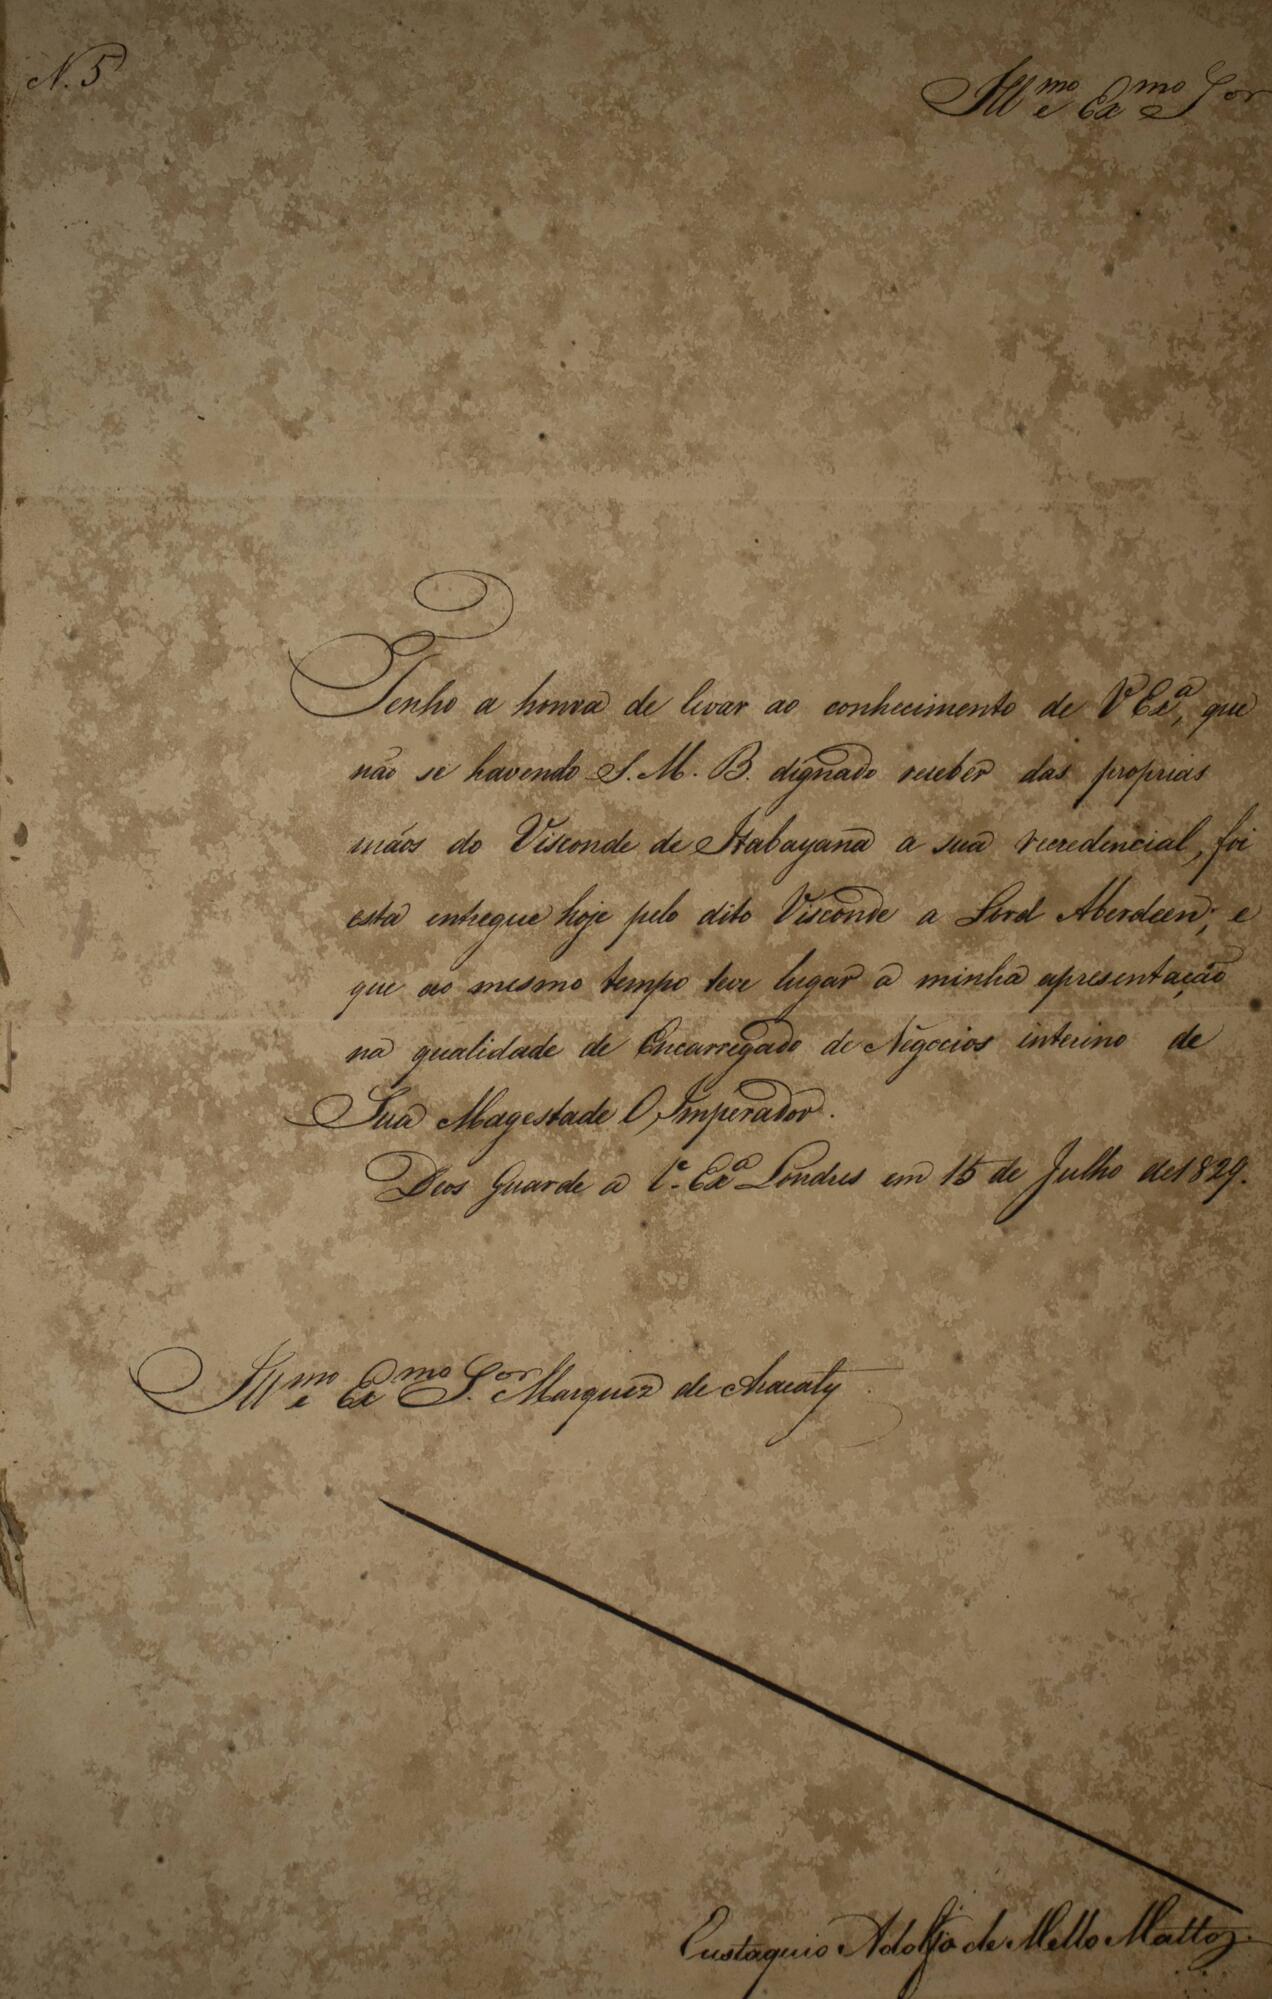 N. 5
Ill.mo e Ex.mo S.or
Tenho a honra de levar ao conhecimento de V Ex.a, que
não se havendo S. M. B. dignado receber das proprias
mãos do Visconde de Itabayana a sua recredencial, foi
esta entregue hoje pelo dito Visconde a Lord Aberdeen; e
que ao mesmo tempo teve lugar a minha apresentação
na qualidade de Encarregado de Negocios interino de
Sua Magestade O Imperador.
Deos Guarde a V.e Ex.a Londres em 15 de Julho de 1829.
Ill.mo e Ex.mo S.or Marquez de Aracaty
Eustaquio Adolfo de Mello Mattos.